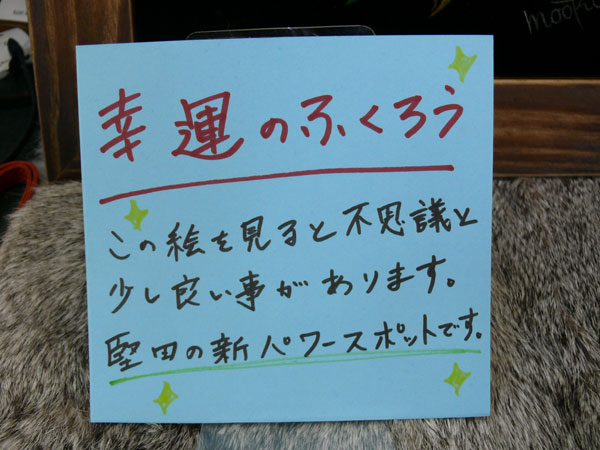 幸運のふくろう
この絵を見ると不思議と
少し良い事があります。
堅田の新パワースポットです。